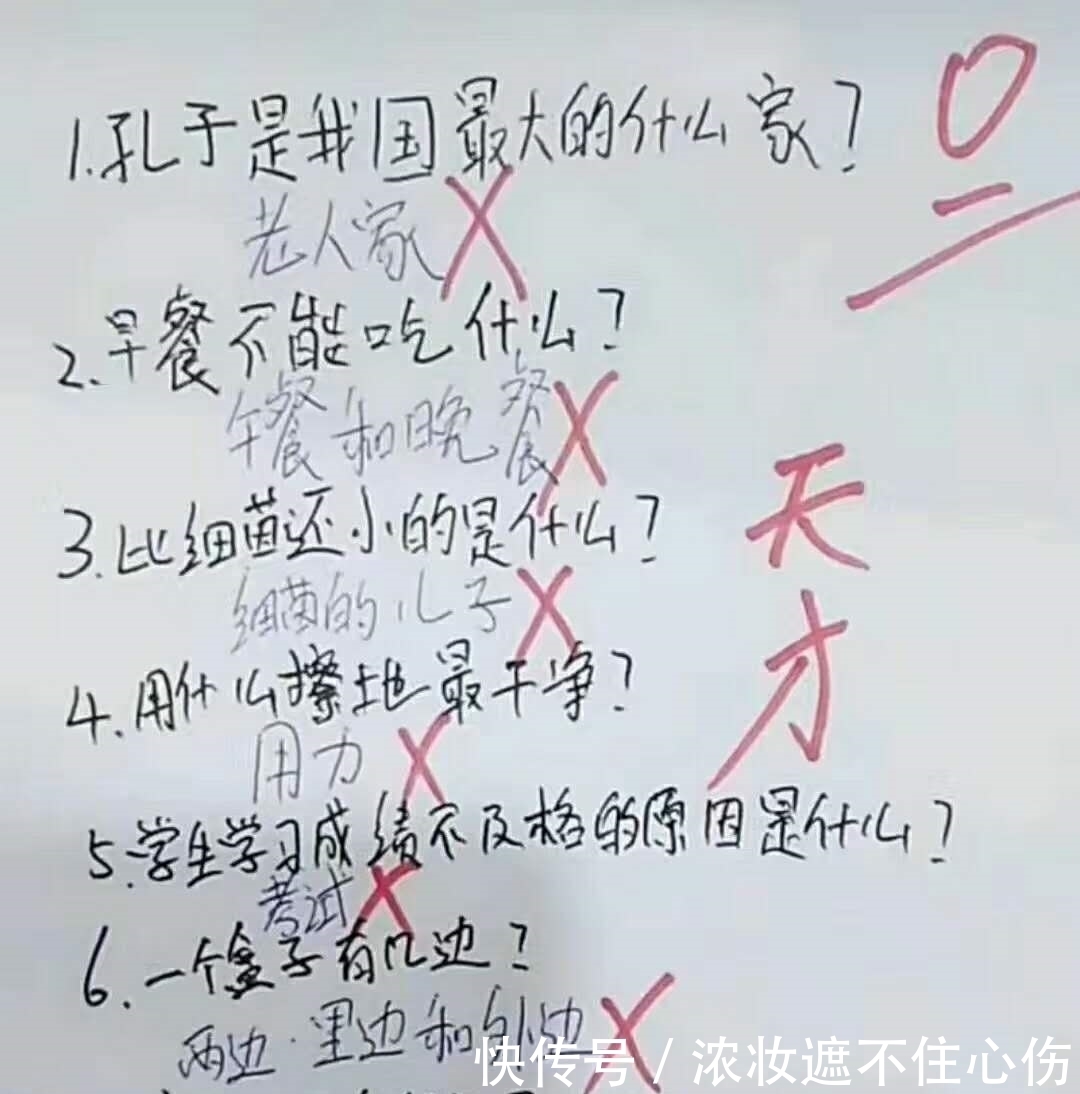 1.孔子是我国最大的什么家?
老人家
2.早餐不能吃什么?
午餐和晚餐
3.比细菌还小的是什么?
细菌的儿子
4.用什么擦地最干净?
用力
5.学生学习成绩不及格的原因是什么?
考试
6.一个盒子有几边?
两边.里边和外边
0
天才
快传号/浓妆遮不住心伤